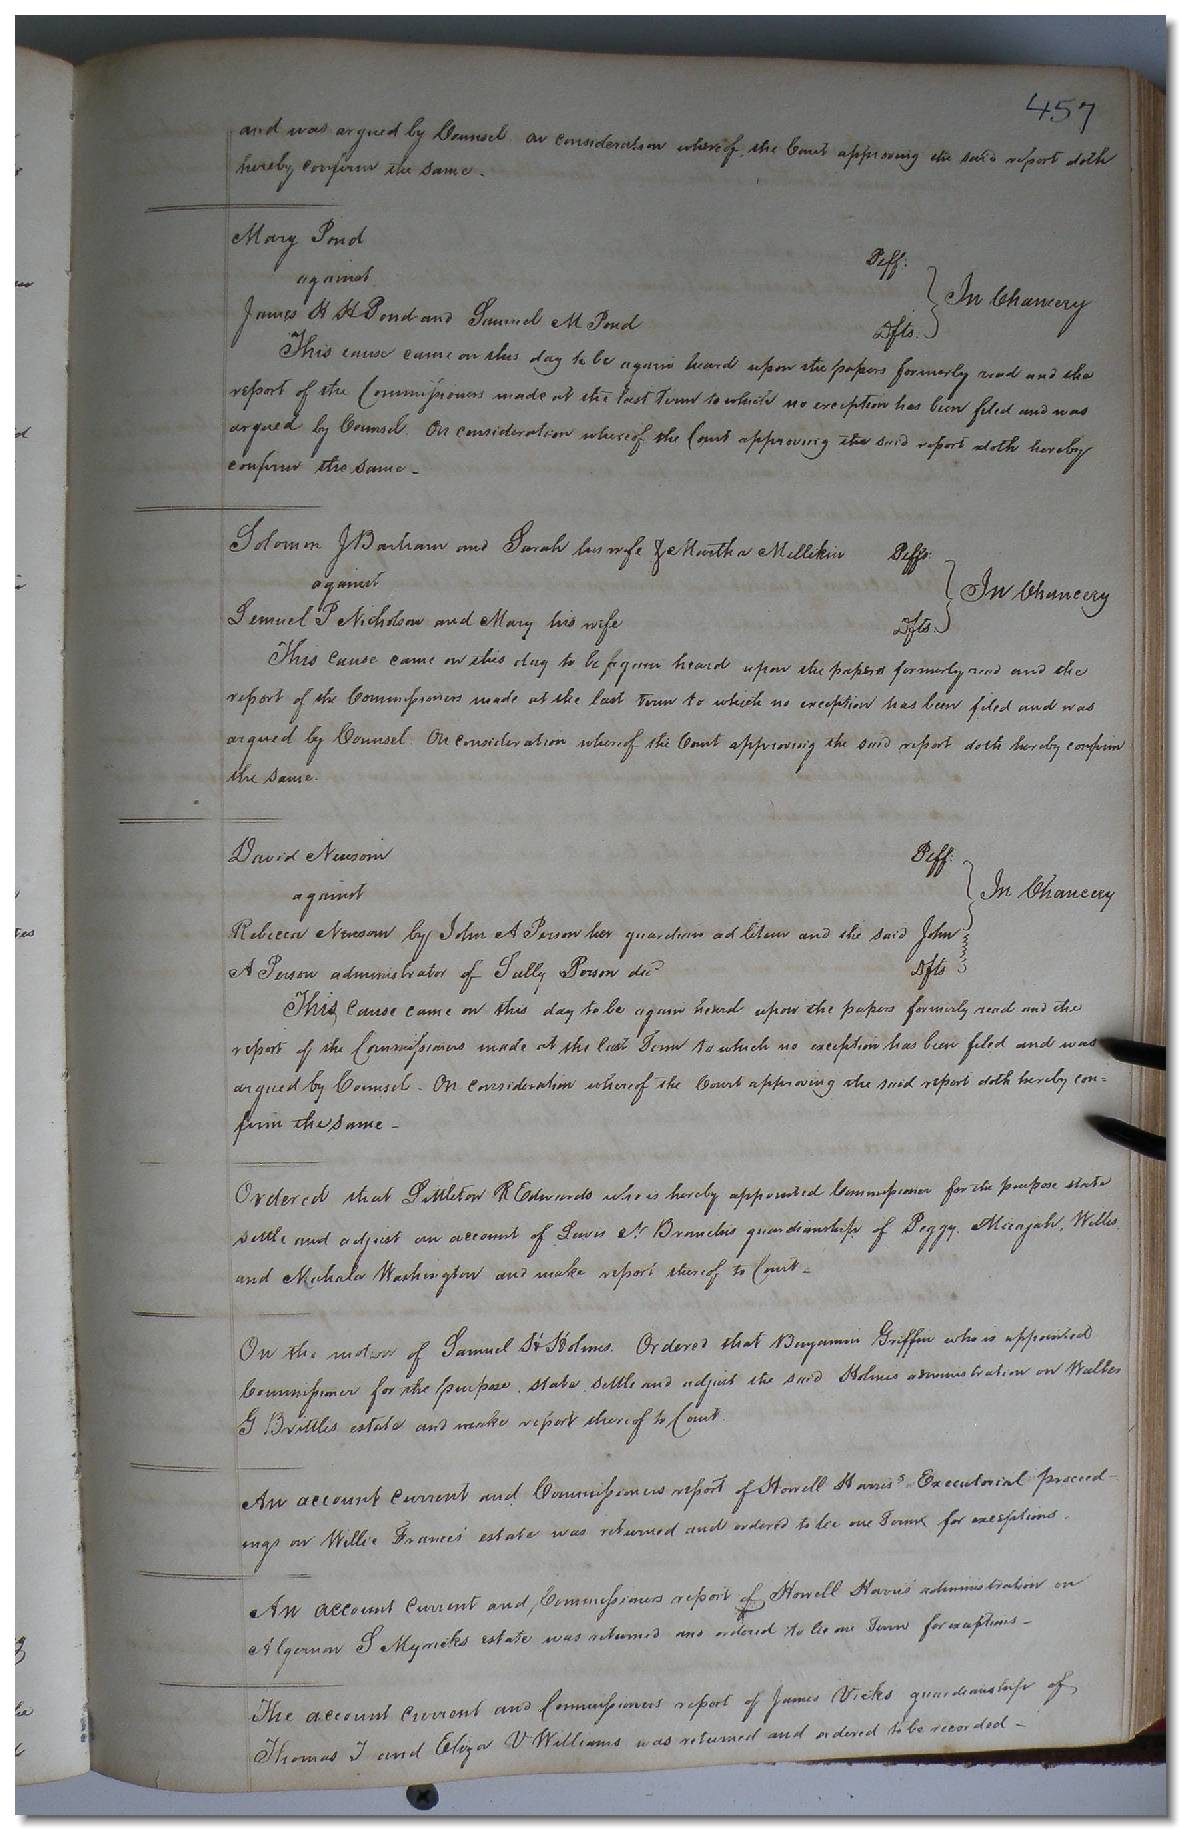 457
and was argued by Counsel. on consideration whereof, the Court approving the said report doth
hereby confirm the same.
Mary Pond Plff:
against In Chancery
James H H Pond and Samuel M Pond Dfts.
This cause came on this day to be again heard upon the papers formerly read and the
report of the Commissioners made at the last Term to which no exception has been filed and was
argued by Counsel. On consideration whereof the Court approving the said report doth hereby
confirm the same -
Solomon J Barham and Sarah his wife & Martha Millikin Plffs.
against In Chancery
Lemuel P Nicholson and Mary his wife Dfts.
This cause came on this day to be again heard upon the papers formerly read and the
report of the Commissioners made at the last Term to which no exception has been filed and was
argued by Counsel. On consideration whereof the Court approving the said report doth hereby confirm
the same.
David Newsom Plff:
against In Chancery
Rebecca Newsom by John A Person her guardian ad litem and the said John
A Person administrator of Sally Person decd Dfts
This cause came on this day to be again heard upon the papers formerly read and the
report of the Commissioners made at the last Term to which no exception has been filed and was
argued by Counsel - On consideration whereof the Court approving the said report doth hereby con=
firm the same -
Ordered that Littleton R Edwards who is hereby appointed Commissioner for the purpose state
settle and adjust an account of Lewis Branch's guardianship of Peggy, Micajah, Willis,
and Washington and make report thereof to Court -
On the motion of Samuel H Holmes. Ordered that Benjamin Griffin who is appointed
Commissioner for the purpose, state, settle and adjust the said Holmes administration on Walter
G Brittles estate and make report thereof to Court.
An account current and Commissioners report of Howell Harris's Executorial proceed-
ings on Willie Francis' estate was returned and ordered to lie one Term for exceptions.
An account current and Commissioners report of Howell Harris' administration on
Algernon S Myricks estate was returned and ordered to lie one Term for exceptions -
The account current and Commissioners report of James Vicks guardianship of
Thomas J and Eliza V Williams was returned and ordered to be recorded -